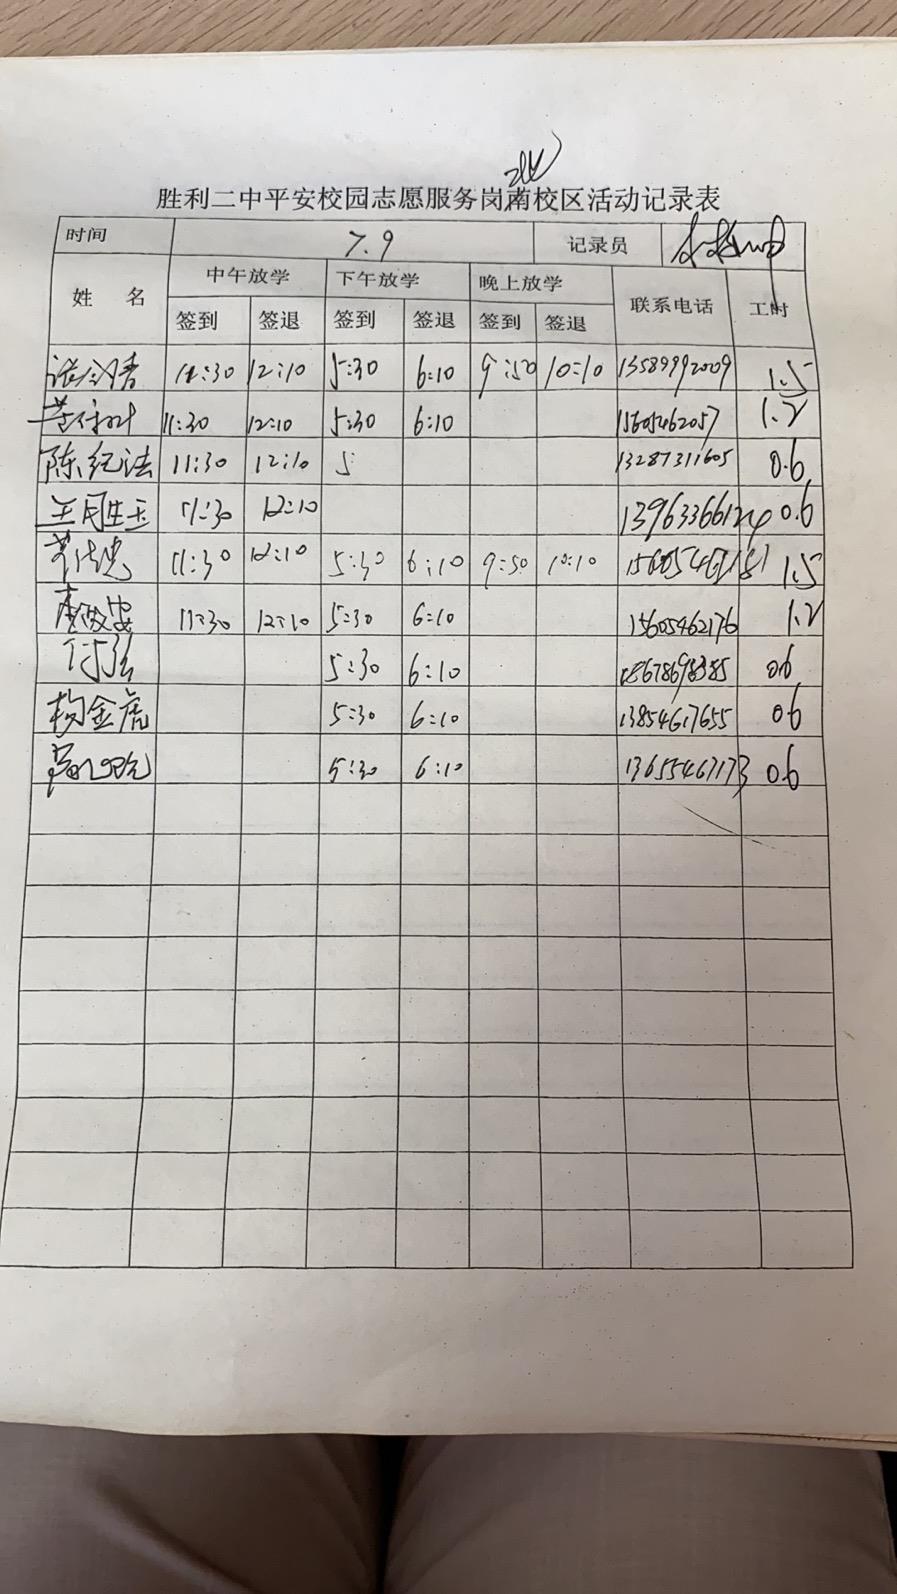 北
胜利二中平安校园志愿服务岗南校区活动记录表
时间 7.9 记录员
姓 名 中午放学 下午放学 晚上放学 联系电话 工时
签到 签退 签到 签退 签到 签退
11:30 12:10 5:30 6:10 9:50 10:10 13589992009 1.5
11:30 12:10 5:30 6:10 15605462057 1.2
陈纪法 11:30 12:10 5 13287311605 0.6
11:30 12:10 0.6
11:30 12:10 5:30 6:10 9:50 10:10 1.5
11:30 12:10 5:30 6:10 15605462176 1.2
5:30 6:10 0.6
杨金虎 5:30 6:10 13854617655 0.6
5:30 6:10 13655467173 0.6